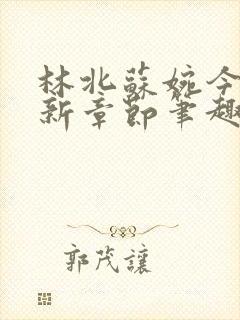 林北蘇婉今
新章節筆趣
郭茂讓